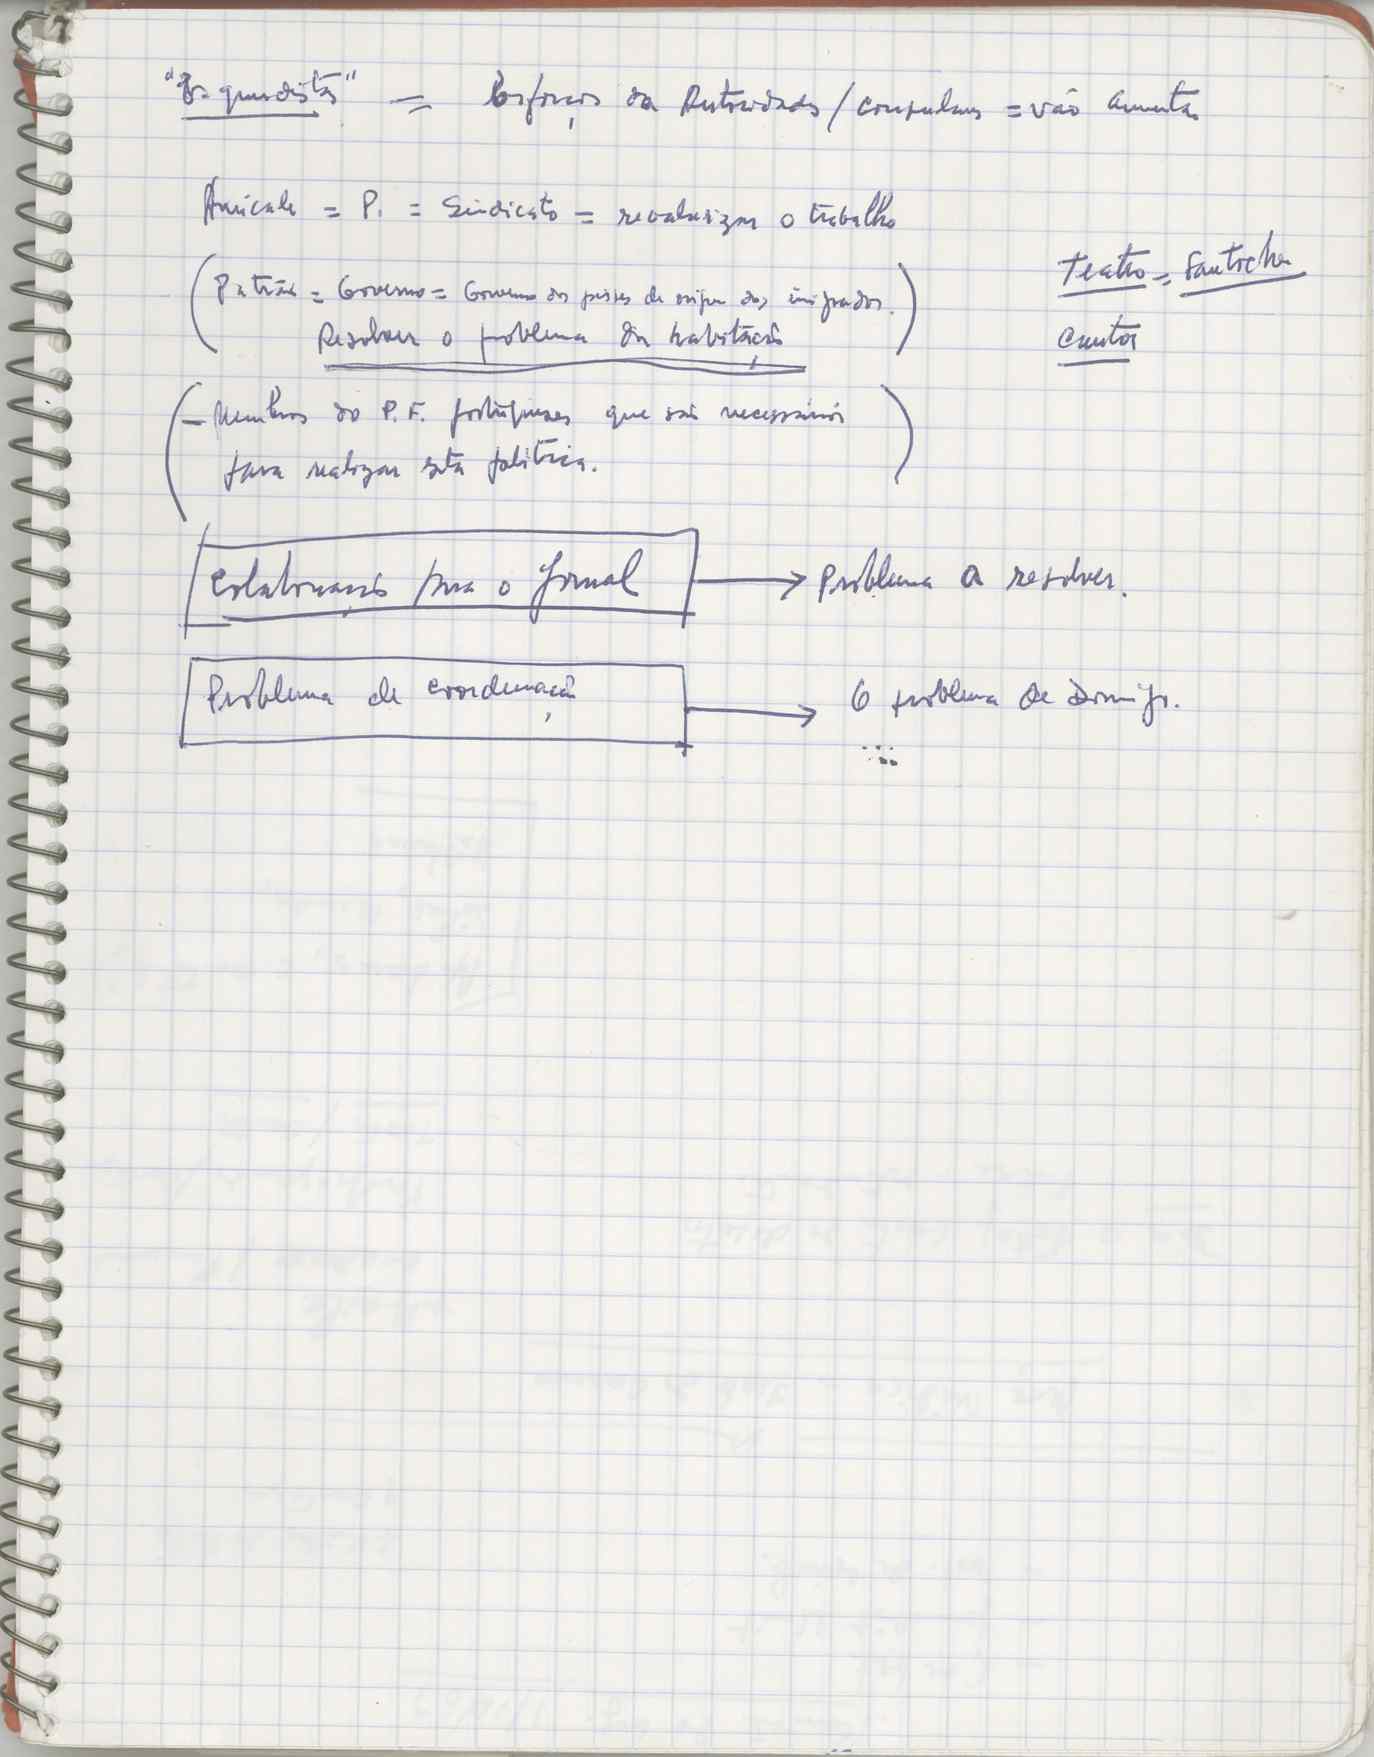 "Esquerdistas" = Esforços da Autoridades / consulares = vão aumentar
Amicale = P. = Sindicato = revalorizar o trabalho
(Patrões = Governo = Governo dos países de origem dos imigrados.
Resolver o problema da habitação)
Teatro = Fantoches
Cantos
(- Membros do P.F. portugueses que são necessários
para realizar esta política.)
Colaboração para o Jornal → Problema a resolver.
Problema de coordenação → O problema de Domingo.